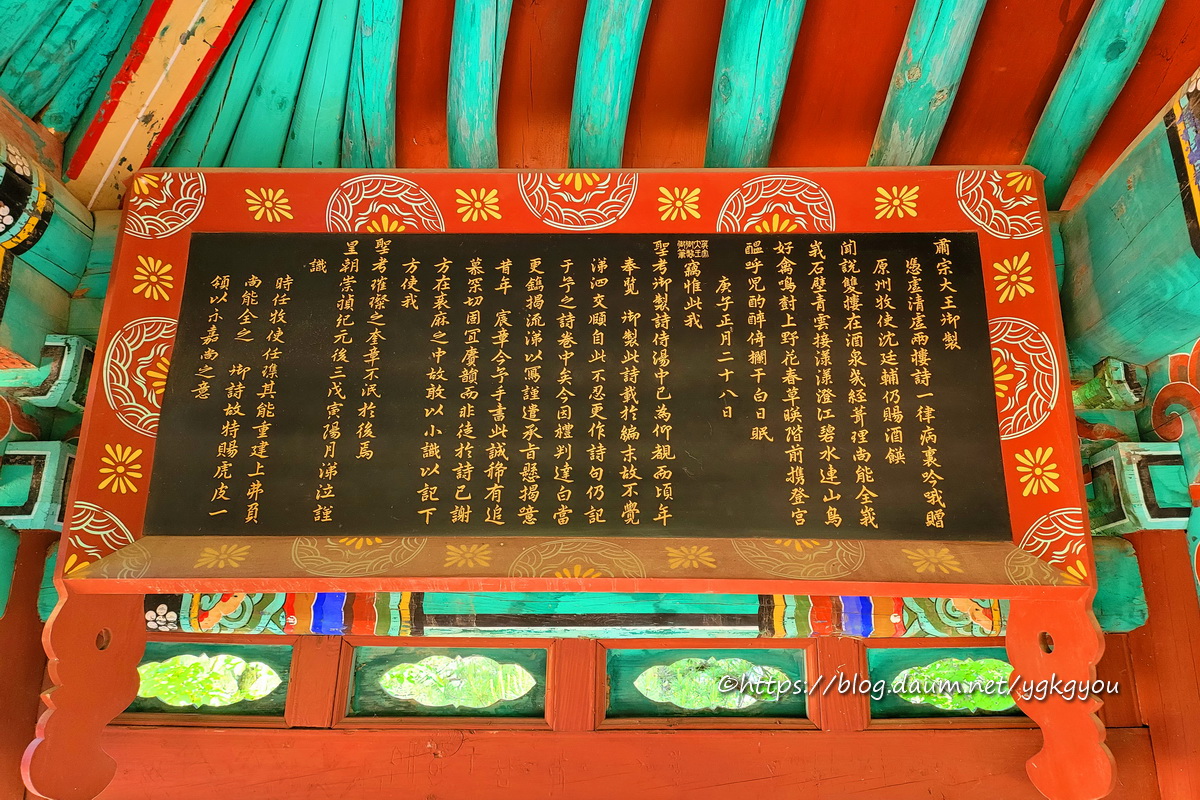 肅宗大王御製
憑虛淸虛兩樓詩一律病裏吟哦贈
原州牧使沈廷輔仍賜酒饌
聞說雙樓在酒泉幾經葺理尙能全峩
峩石壁靑雲接漾漾澄江碧水連山鳥
好禽鳴對上野花春草暎階前携登官
醞呼兒酌醉倚欄干白日眠
庚子正月二十八日
英宗大王御製御筆
竊惟此我
聖考御製詩侍湯中已爲仰覩而頃年
奉覽 御製此詩載於編末故不覺
涕泗交頤自此不忍更作詩句仍記
于予之詩卷中矣今因禮判達白當
更鐫揭流涕以寫謹遣承旨懸揭噫
昔年 宸章今予手書此誠稀有追
慕深切固宜賡韻而非徒於詩已謝
方在衰麻之中故敢以小識以記下
方使我
聖考璀璨之奎章不泯於後焉
皇朝崇禎紀元後三戊寅陽月涕泣謹
識
時任牧使任 其能重建上弗負
尙能全之 御詩故特賜虎皮一
領以示嘉尙之意
©https://blog.daum.net/ygkgyou